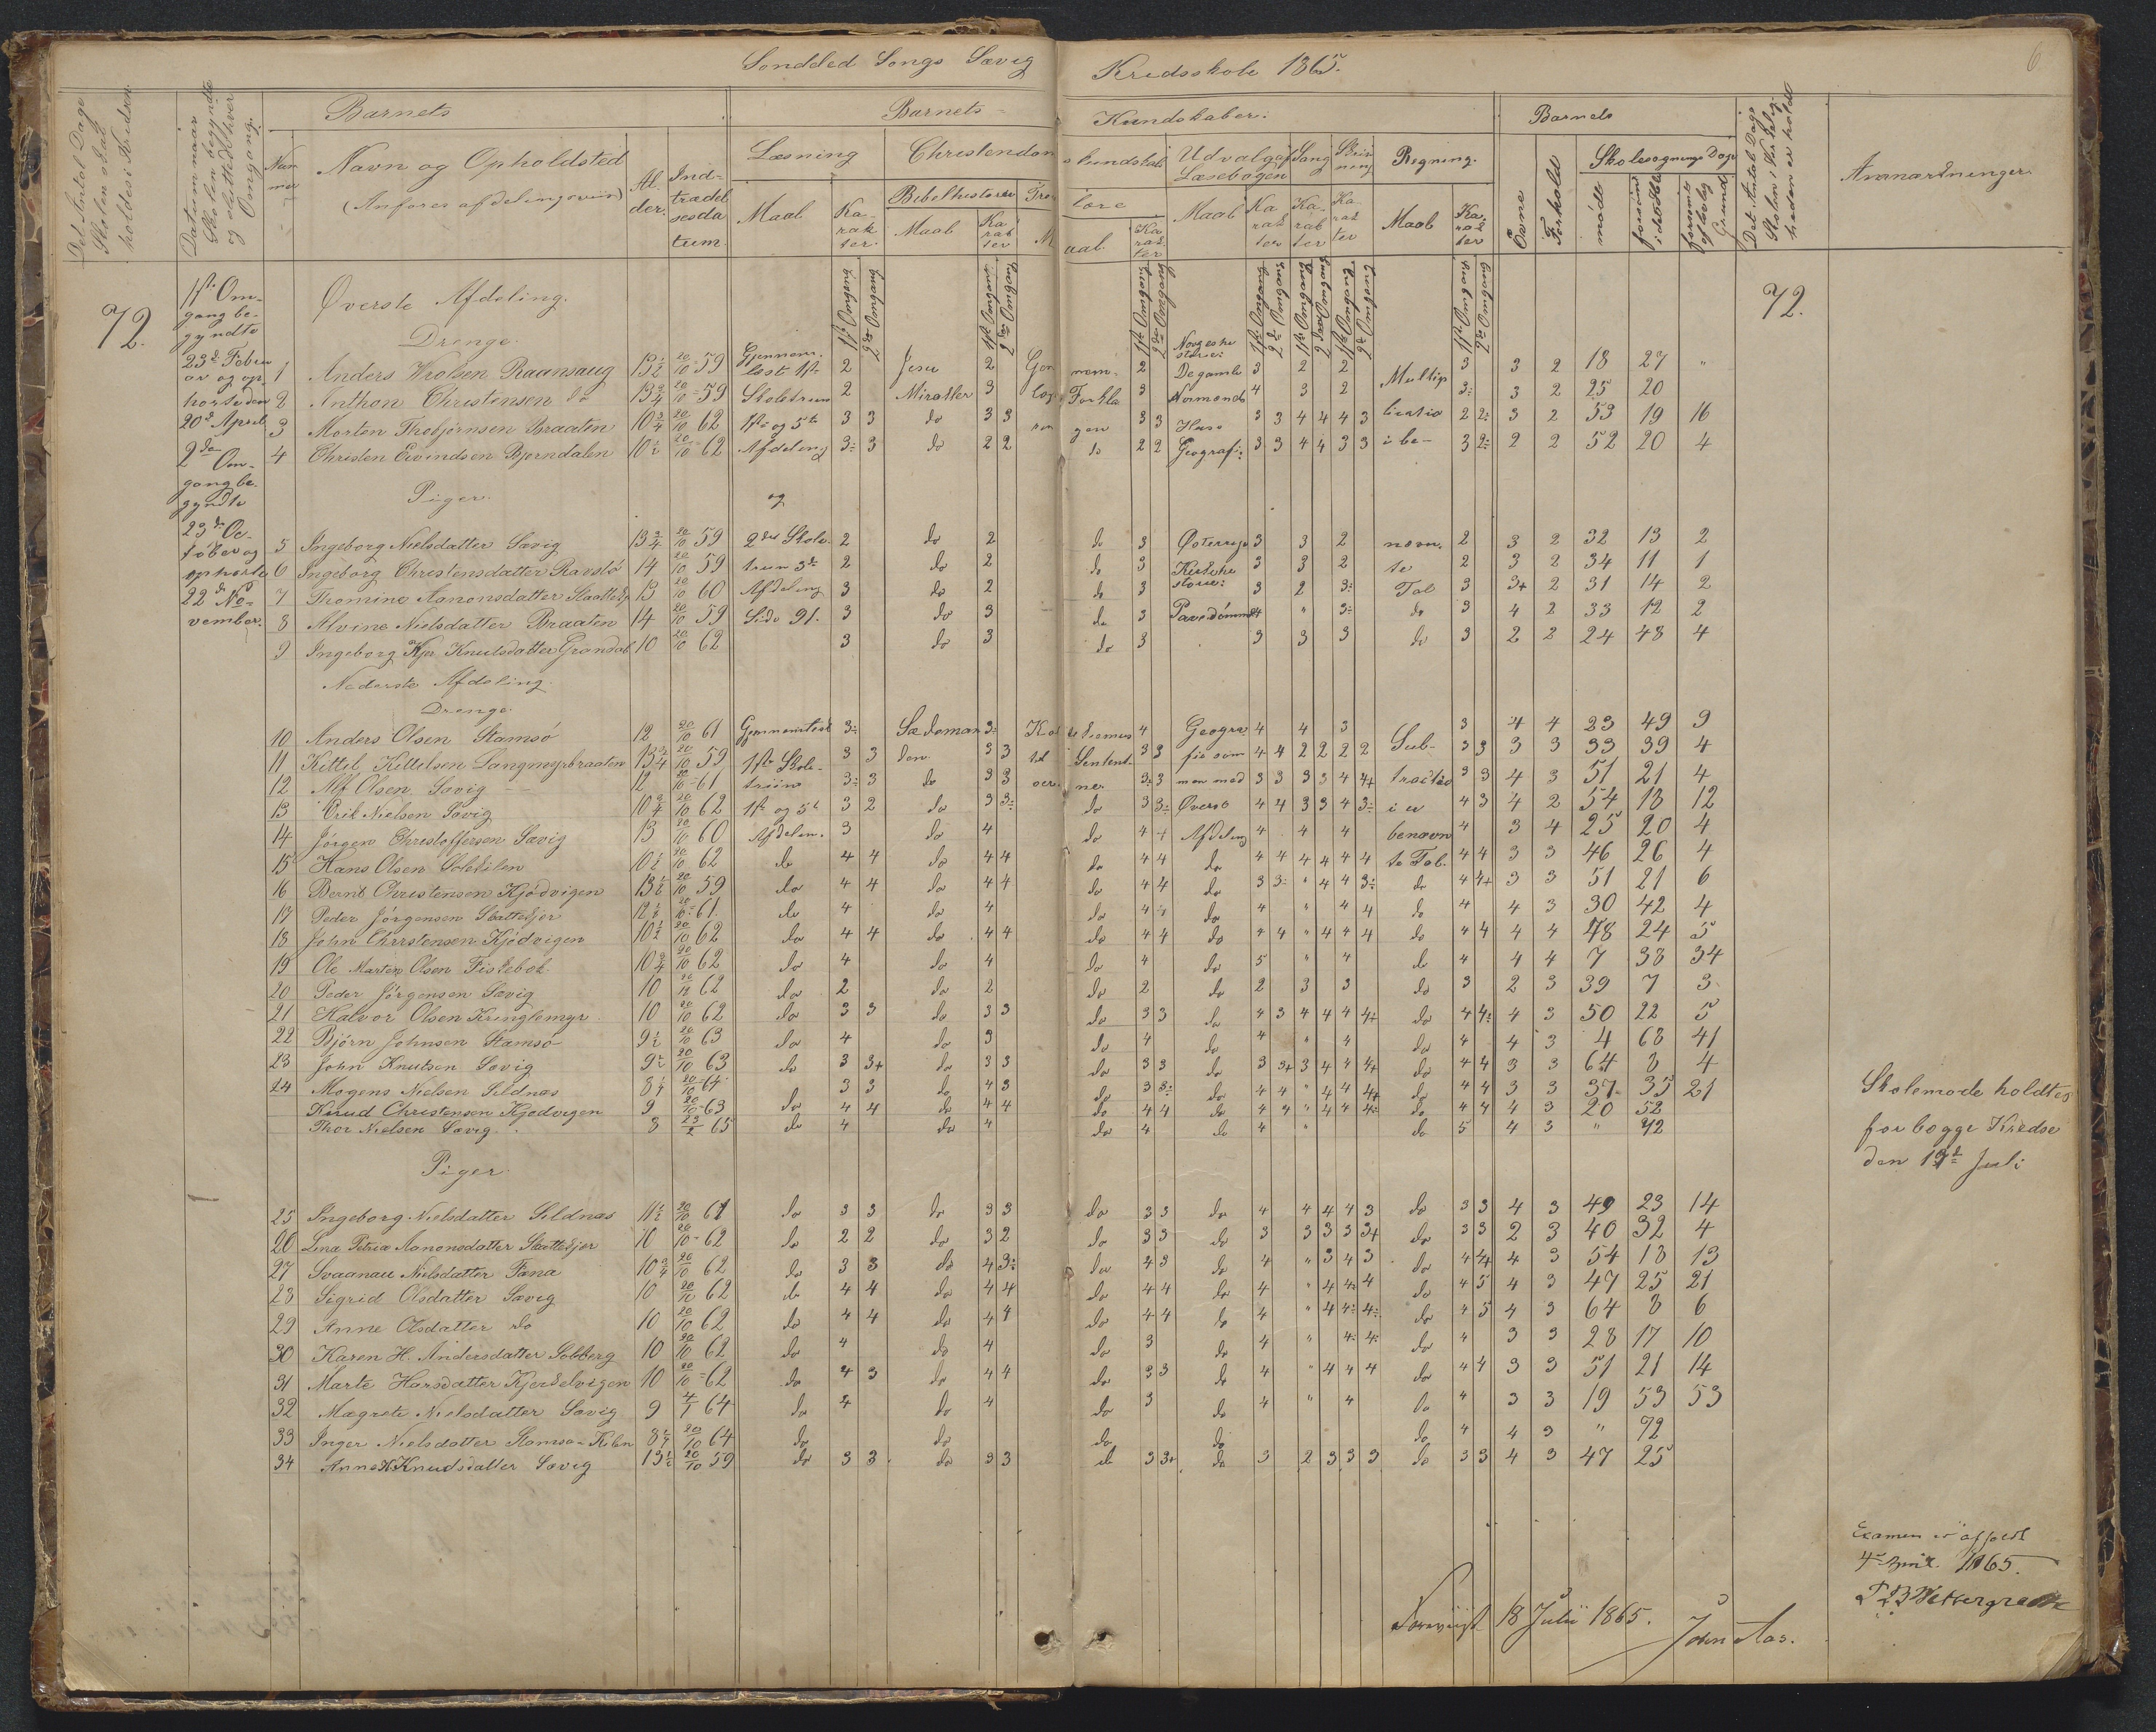 Sonddled Songs Sævig Kredsskole 1865.
6
Det Antal Dage Skolen skal holdes i Kredsen.
Datum naar Skolen begyndte og sluttedes hver Omgang.
Barnets
Barnets Kundskaber.
Barnets
Det Antal Dage Skolen i Virkelig-heden er holdt
Anmærkninger
Nummer
Navn og Opholdsted
(Anføres afdelingsviis)
Alder.
Indtrædelsesdatum.
Læsning
Christendomskundskab
Udvalg af Læsebogen
Sang
Skrivning
Regning.
Evne
Forhold
Skolesøgnings Dage
Maal
Karakter.
Bibelhistorie
Troeslære
Maal
Karakter
Maal
Karakter
Maal
Karakter
Karakter
Karakter
Maal
Karakter
mødt
forsømt i det Hele
forsømt af lovlig Grund
1ste Omgang 2den Omgang
72.
1ste Omgang begyndte 23de Februar og ophørte den 20de April
2den Omgang begyndte 23de October og ophørte 22de November.
72.
Øverste Afdeling.
Drenge.
1 Anders Wrolsen Raamaaug 13½ 20/10 59 Gjennemlæst 1ste 2 Jesu 2 Gjen nem- 2 Norges historie: De gamle 3 2 2 Multip 3 3 2 18 27 "
2 Anthon Christensen do 13¾ 20/10 59 Skoletrin 2 Mirakler 3 Forkla 3 Normænds 4 3 2 3: 3 2 25 20
3 Morten Thobjørnsen Braaten 10¾ 20/10 62 1ste og 5te 3 3 do 3 3 gen 3 3 Huse 3 3 4 4 4 3 licatio 2 2: 3 2 53 19 16
4 Christen Eivindsen Bjorndalen 10½ 20/10 62 Afdeling 3: 3 do 2 2 do 2 2 Geografi: 3 3 4 4 3 3 i be- 3 2: 2 2 52 20 4
Piger. og
5 Ingeborg Nielsdatter Sævig 13¾ 20/10 59 2det Skole- 2 do 2 do 3 Østerrige 3 3 2 nævn. 2 3 2 32 13 2
6 Ingeborg Christensdatter Ravslø 14 20/10 59 trin 3de 2 do 2 do 3 Kirkehi 3 3 2 te 2 3 2 34 11 1
7 Thomine Aanonsdatter Skaattekj 13 20/10 60 Afdeling 3 do 2 do 3 storie: 3 2 3: Tal 3 3+ 2 31 14 2
8 Alvine Nielsdatter Braaten 14 20/10 59 Side 91. 3 do 3 do 3 Pavedømmet 4 " 3: do 3 4 2 33 12 2
9 Ingeborg Kjr Knutsdatter Grøndal 10 20/10 62 3 do 3 do 3 3 3 3 do 3 2 2 24 48 4
Nederste Afdeling.
Drenge.
10 Anders Olsen Stamsø 12 20/10 61 Gjennemlæst 3: Sædeman 3: 4 Geogra 4 4 3 3 4 4 23 49 9
11 Kittel Kittelsen Langmyrbraaten 13¾ 20/10 59 1ste Skole- 3 3 den 3 3 Sentent- 3 3 fie sam 4 4 2 2 2 2 Sub- 3 3 3 3 33 39 4
12 Alf Olsen Sævig 12 20/10 61 triins 3: 3 do 3 3 ner 3: 3 men med 3 3 3 3 4 4+ tractio 3 3 4 3 51 21 4
13 Erik Nielsen Sævig 10¾ 20/10 62 1ste og 5te 3 2 do 3 3: do 3 3: Øverste 4 4 3 3 4 3: i u 4 3 4 2 54 18 12
14 Jørgen Christoffersen Sævig 13 20/10 60 Afdelin. 3 do 4 do 4 4 Afdeling 4 4 4 benævn 4 3 4 25 20 4
15 Hans Olsen Solekilen 10½ 20/10 62 do 4 4 do 4 4 do 4 4 do 4 4 4 4 4 4 te Tal. 4 4 3 3 46 26 4
16 Bernt Christensen Kjødvigen 13½ 20/10 59 do 4 4 do 4 4 do 4 4 do 3 3: " 4 4 3: do 4 4+ 3 3 51 21 6
17 Peder Jørgensen Skattekjer 12½ 20/10 61. do 4 do 4 do 4 4 do 4 " 4 4 do 4 4 3 30 42 4
18 John Christensen Kjødvigen 10½ 20/10 62 do 4 4 do 4 4 do 4 4 do 4 4 " 4 4 4 do 4 4 4 4 48 24 5
19 Ole Marten Olsen Fiskebæk 10¾ 20/10 62 do 4 do 4 do 4 do 5 " 4 do 4 4 4 7 38 34
20 Peder Jørgensen Sævig 10 20/10 62 do 2 do 2 do 2 do 2 3 3 do 3 2 3 39 7 3
21 Halvor Olsen Kringlemyr 10 20/10 62 do 3 3 do 3 3 do 3 3 do 4 3 4 4 4 4+ do 4 4: 4 3 50 22 5
22 Bjørn Johnsen Stamsø 9½ 20/10 63 do 4 do 3 do 4 do 4 " 4 do 4 4 3 4 68 41
23 John Knutsen Sævig 9½ 20/10 63 do 3 3+ do 3 3 do 3 3 do 3 3+ 3 4 4 4+ do 4 4 3 3 64 8 4
24 Mogens Nielsen Sildnæs 8¼ 20/10 64 3 3 do 4 3 do 3 3: do 4 4 " 4 4 4+ do 4 4 3 3 37 35 21
Knud Christensen Kjødvigen 9 20/10 63 do 4 4 do 4 4 do 4 4 do 4 4 " 4 4 4: do 4 4 4 3 20 52
Thor Nielsen Sævig. 8 23/2 65 do 4 do 4 do 4 do 4 " do 5 4 3 " 42
Skolemøde holdtes
for begge Kredse
den 19de Juli
Piger.
25 Ingeborg Nielsdatter Sildnæs 11½ 20/10 61 do 3 3 do 3 3 do 3 3 do 4 4 4 4 3 do 3 3 4 3 49 23 14
26 Lina Petrea Aanonsdatter Skattekjer 10 20/10 62 do 2 2 do 3 2 do 3 3 do 3 3 3 3 3+ do 3 3 2 3 40 32 4
27 Svaanau Nielsdatter Fana 10¾ 20/10 62 do 3 3 do 4 3: do 4 3 do 4 " 3 4 3 do 4 4 4 3 54 18 13
28 Sigrid Olsdatter Sævig 10 20/10 62 do 4 4 do 4 4 do 4 4 do 4 " 4 4 4 do 4 5 4 3 47 25 21
29 Anne Olsdatter do 10 20/10 62 do 4 4 do 4 4 do 4 4 do 4 " 4 4: 4: do 4 5 4 3 64 8 6
30 Karen H. Andersdatter Solberg 10 20/10 62 do 4 do 4 do 3 do 4 " 4: 4: do 4 3 3 28 17 10
31 Marte Hansdatter Kjendelvigen 10 20/10 62 do 4 3 do 4 4 do 3 3 do 4 " 4 4 4 do 4 4 3 3 51 21 14
32 Magrete Nielsdatter Sævig 9 4/1 64 do 4 do 4 do 3 do 4 " 4 do 4 3 3 19 53 53
33 Inger Nielsdatter Stamsø-Kilen 8¼ 20/10 64 do do do do do 4 4 3 " 72
34 Anne K Knudsdatter Sævig 13½ 20/10 59 do 3 3 do 3 3 do 3 3+ do 3 2 3 3 3 do 3 3 4 3 47 25
Examen er afholdt
4 April 1865.
Foreviist 18 Julii 1865.
John Aas.